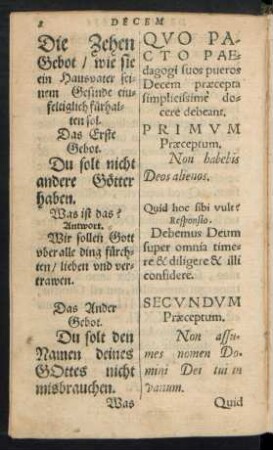 2 DECEM
Die Zehen
Gebot / wie sie
ein Hausvater sei-
nem Gesinde ein-
feltiglich fürhal-
ten sol.
Das Erste
Gebot.
Du solt nicht
andere Götter
haben.
Was ist das?
Antwort.
Wir sollen Gott
vber alle ding fürch-
ten / lieben vnd ver-
trawen.
Das Ander
Gebot.
Du solt den
Namen deines
GOttes nicht
misbrauchen.
Was
QVO PA-
CTO PAE-
dagogi suos pueros
Decem præcepta
simplicissimè do-
cere debeant.
PRIMVM
Præceptum.
Non habebis
Deos alienos.
Quid hoc sibi vult?
Responsio.
Debemus Deum
super omnia time-
re & diligere & illi
confidere.
SECVNDVM
Præceptum.
Non assu-
mes nomen Do-
mini Dei tui in
vanum.
Quid